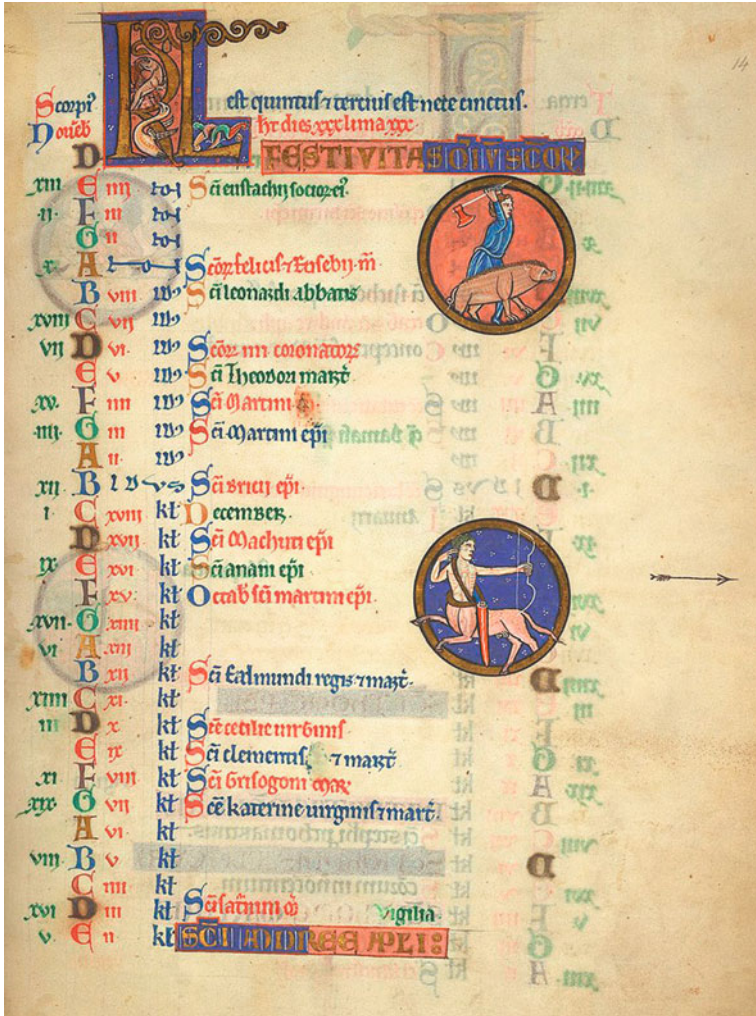 14
KL est quintus ⁊ tercius est nece cinctus.
Scorpi᷒
Noueb̄ hr̄ dies xxx luna xxx
D FESTIVITAS OĪV̄ SCOR̄
xiii E iiii No Sc̄i eustachij socior ei᷒.
ii F iii No
G ii No
x A No Scōr felicis ⁊ Eusebij m̄
B viii id᷒ Sc̄i leonardi abbatis
xviii C vii id᷒
vii D vi id᷒ Scōr iiii coronator̄
E v id᷒ Sc̄i Theodori mart̄
xv F iiii id᷒ Sc̄i Martini
iiii G iii id᷒ Sc̄i Martini ep̄i
A ii id᷒
xii B IDVS Sc̄i bricij ep̄i.
i C xviii kt December.
D xvii kt Sc̄i Machuti ep̄i
ix E xvi kt Sc̄i aniani ep̄i
F xv kt Octab̄ sc̄i martini ep̄i.
xvii G xiiii kt
vi A xiii kt
B xii kt Sc̄i Eadmundi regis ⁊ mart̄.
xiiii C xi kt
iii D x kt Sc̄e cecilie uirginis
E ix kt Sc̄i clementis ⁊ mart̄
xi F viii kt Sc̄i Grisogoni mar̄
xix G vii kt Sc̄e katerine uirginis ⁊ mart̄.
A vi kt
viii B v kt
C iiii kt
xvi D iii kt Sc̄i saturnini Vigilia
v E ii kt SC̄I ANDREE APLI: